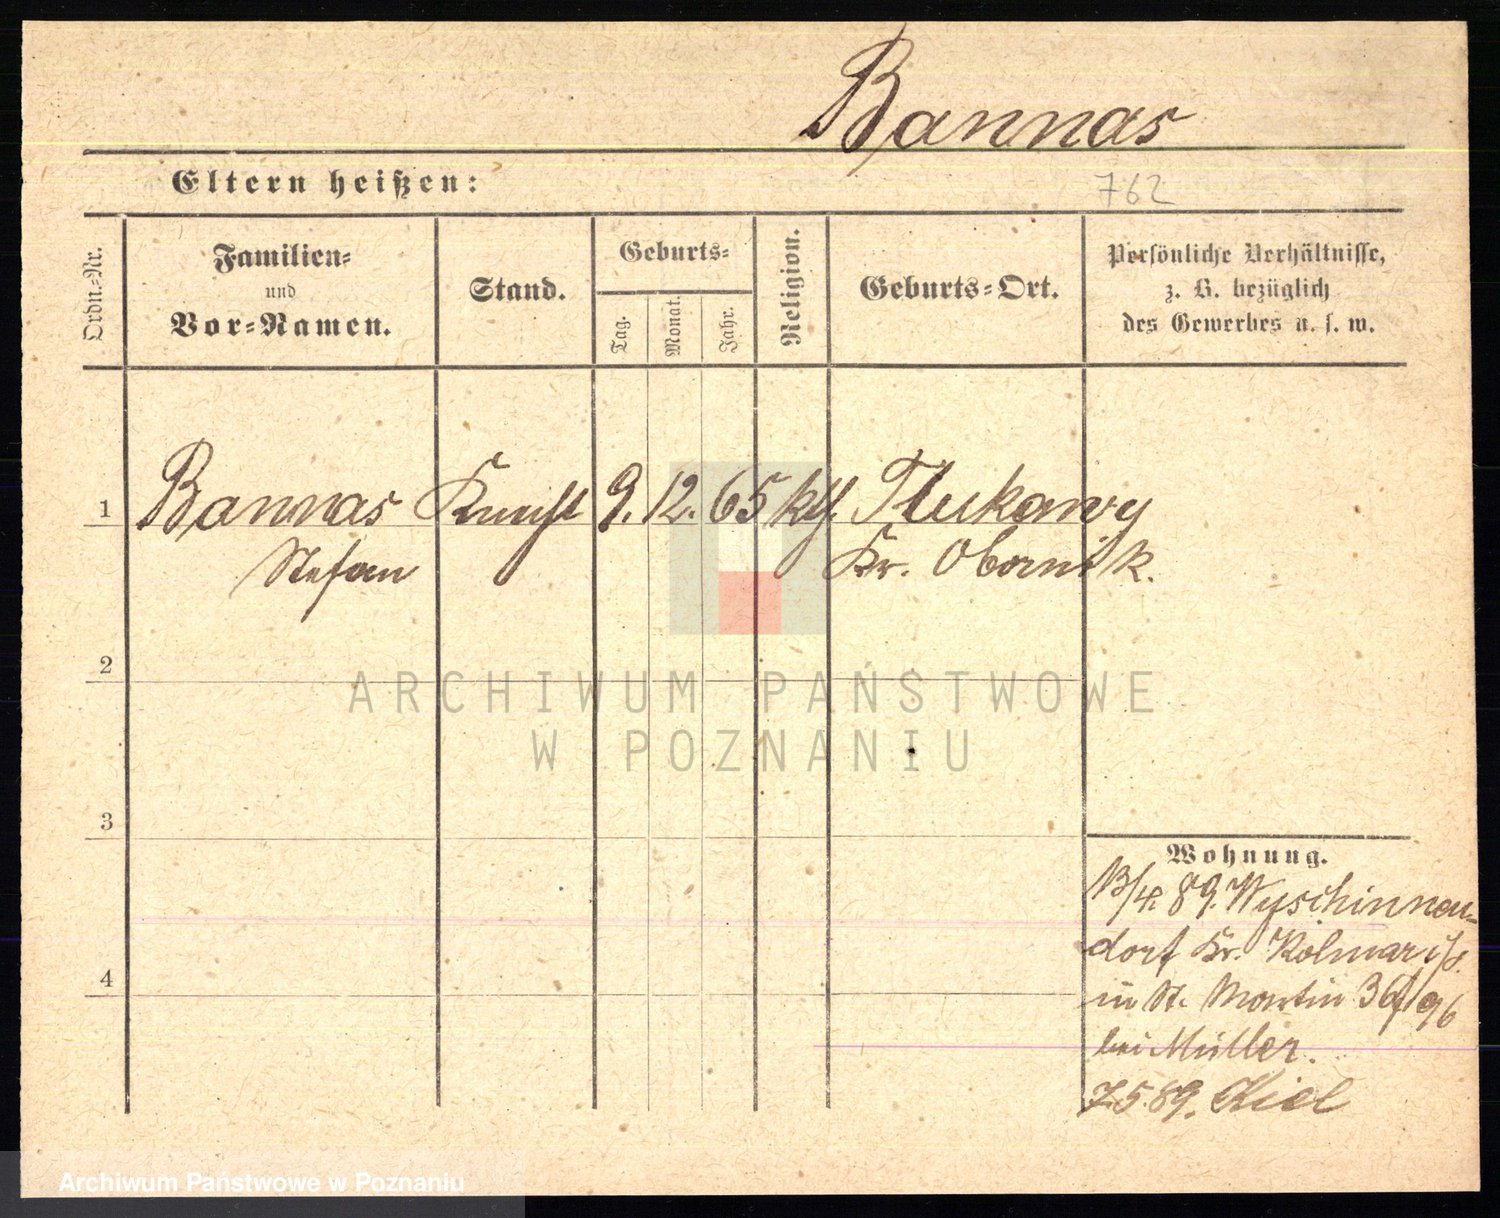 Bannas
Eltern heißen:
762
Ordn.-Nr.
Familien-
und
Vor-Namen.
Stand.
Geburts-
Tag.
Monat.
Jahr.
Religion.
Geburts-Ort.
Persönliche Verhältnisse,
z. B. bezüglich
des Gewerbes u. s. w.
1 Bannas Knecht 9. 12. 65 kth. Tlukawy
Stefan Kr. Obornik.
2
ARCHIWUM PAŃSTWOWE
W POZNANIU
3
Wohnung.
13/4. 89. Wyschinnen-
dorf Kr. Kolmar i/P.
in St. Martin
4
bei Müller.
7.5.89. Kiel
Archiwum Państwowe w Poznaniu